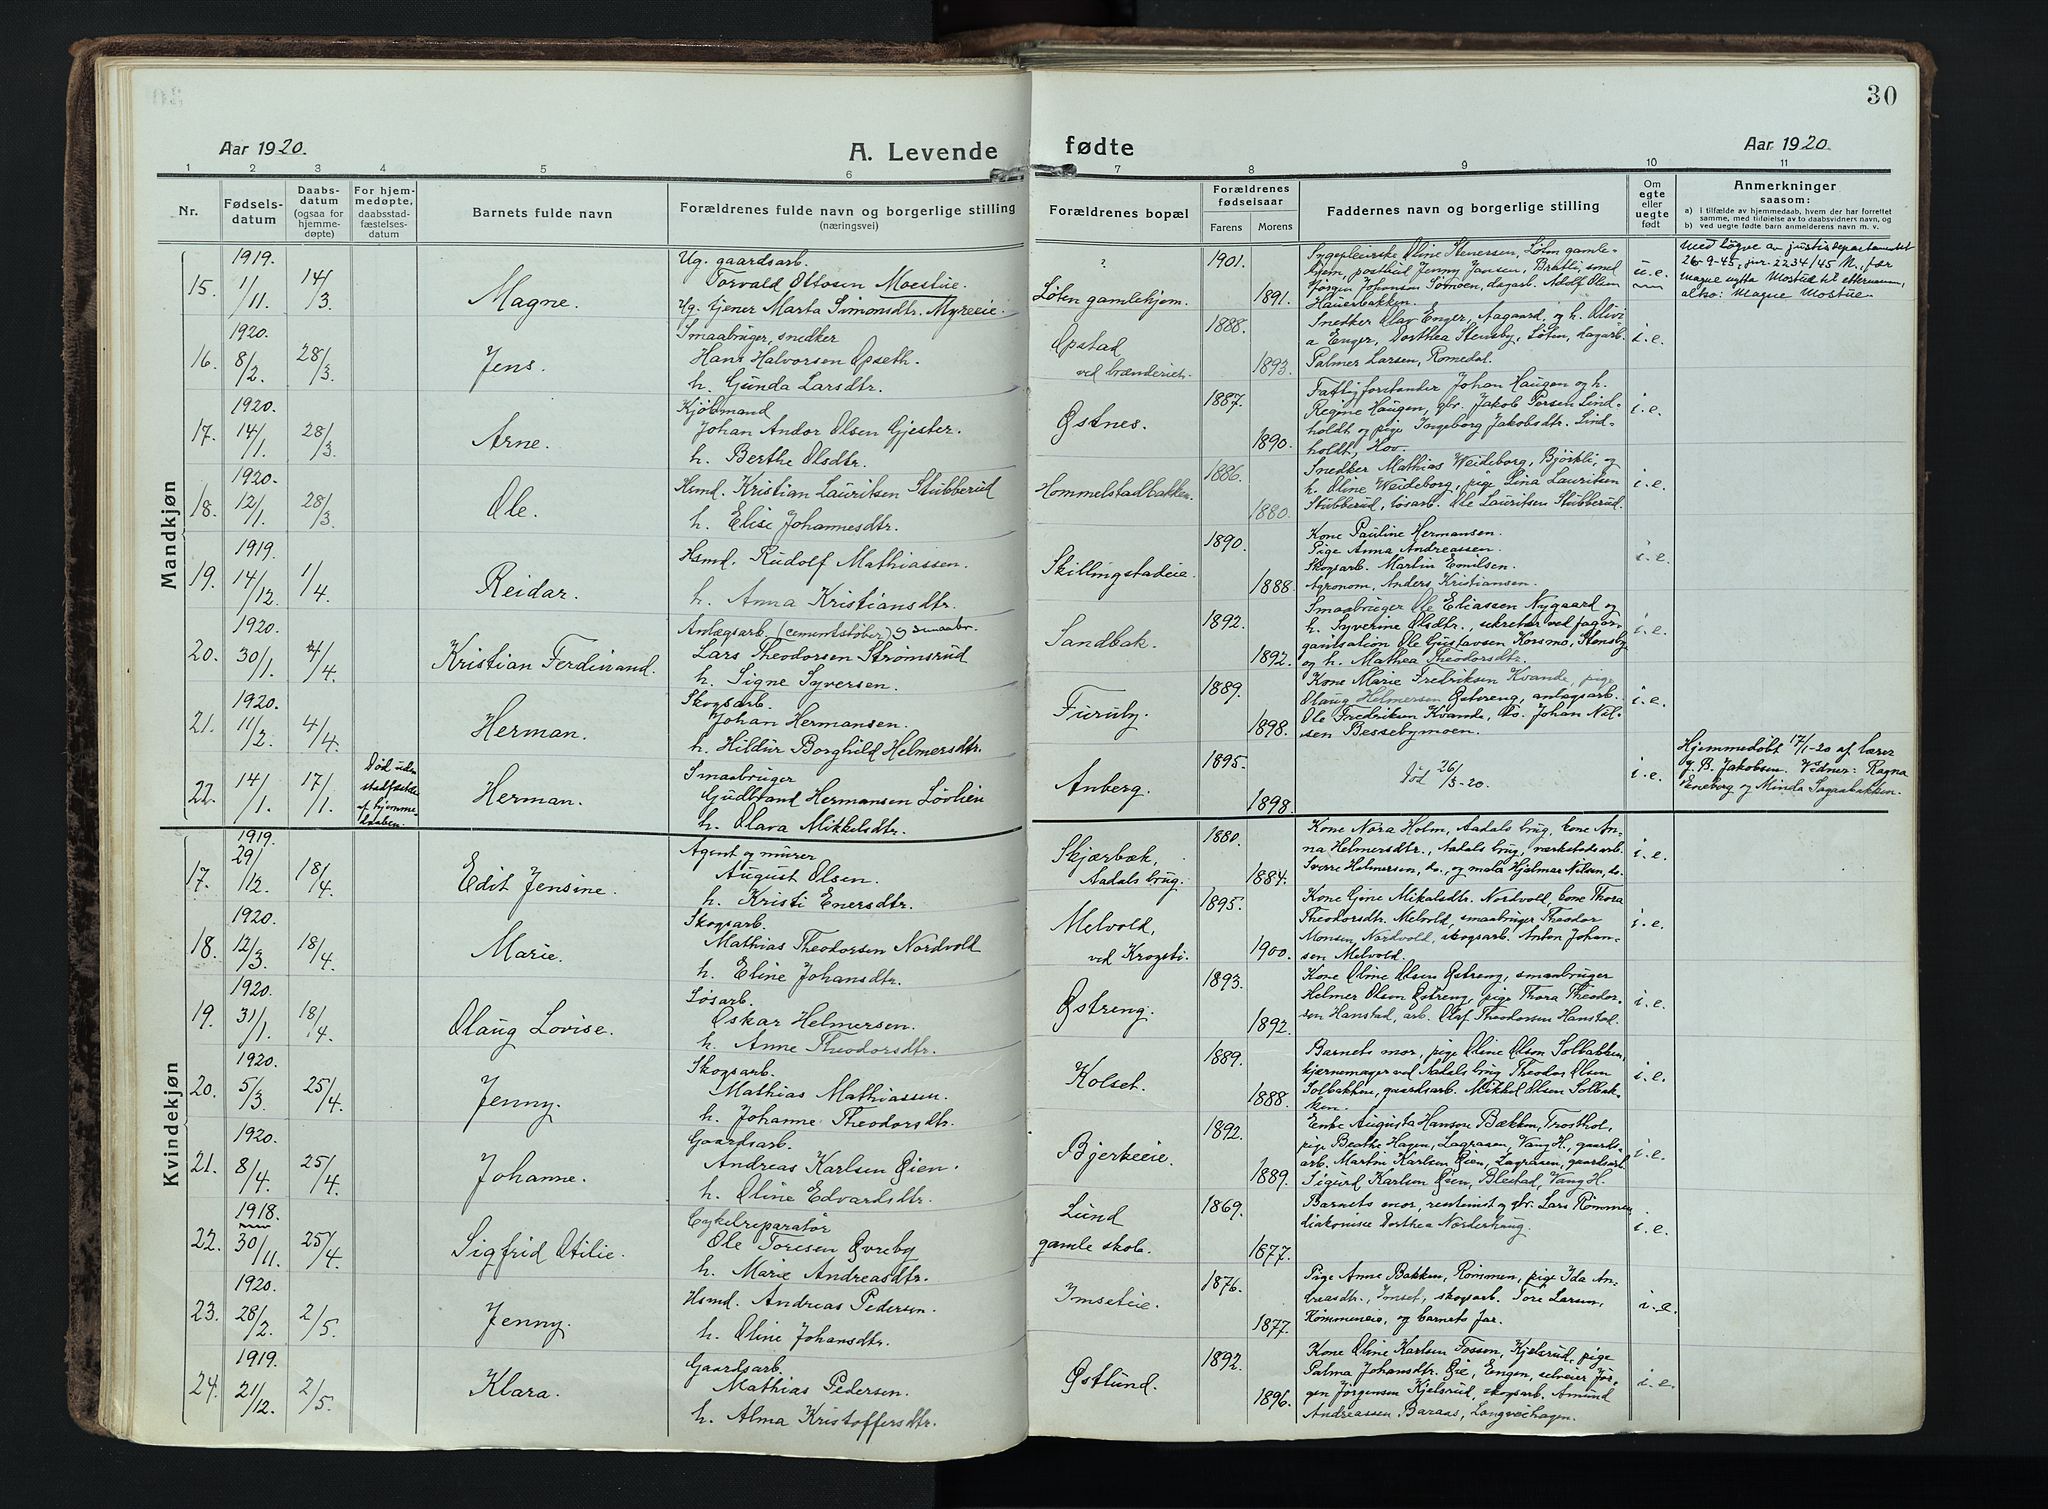 30
Aar 1920.
A. Levende fødte
Aar 1920
1 2 3 4 5 6 7 8 9 10 11
Nr.
Fødsels-
datum
Daabs-
datum
(ogsaa for
hjemme-
døpte)
For hjem-
medøpte,
daabsstad-
fæstelses-
datum
Barnets fulde navn
Forældrenes fulde navn og borgerlige stilling
(næringsvei)
Forældrenes bopæl
Forældrenes
fødselsaar
Farens Morens
Faddernes navn og borgerlige stilling
Om
egte
eller
uegte
født
Anmerkninger
saasom:
a) I tilfælde av hjemmedaab, hvem der har forrettet
samme, med tilføielse av to daabsvidners navn, og
b) ved uegte født barn anmelderens navn m. v.
Mandkjøn
15. 1919. 1/11. 14/3. Magne.
Ug. gaardsarb.
Torvald Ottosen Moestue.
Ug. tjener Marta Simonsdtr. Myreeie.
?
Løten gamlehjem.
1901.
1891.
Sygepleierske Oline Stenersen, Løten gamle-
hjem, postbud Jenny Jansen, Bratli, smed
Jørgen Johansen Somoen, dagarb. Adolf Olsen
Hauerbakken.
u. e.
Med løgve av justisdepartementet
26-9-45, jnr. 2234/45 M., fær
Magne nytta Mostue til etternamn,
altso: Magne Mostue.
16. 1920. 8/2. 28/3. Jens.
Smaabruger, snedker
Hans Halvorsen Opseth.
h. Gunda Larsdtr.
Opstad
ved brænderiet.
1888.
1893.
Snedker Olav Enger, Aagaard, og h. Olivi-
a Enger, Dorthea Stensby, Løten, dagarb.
Palmer Larsen, Romedal.
i. e.
17. 1920. 14/1. 28/3. Arne.
Kjøbmand
Johan Andor Olsen Gjester.
h. Berthe Olsdtr.
Østnes.
1887.
1890.
Fattigforstander Johan Haugen og h.
Regine Haugen, gbr. Jakob Persen Lind-
holdt og pige Ingeborg Jakobsdtr. Lind-
holdt, Hov.
i. e.
18. 1920. 12/1. 28/3. Ole.
Hsmd. Kristian Lauritsen Stubberud
h. Elise Johannesdtr.
Hommelstadbakken.
1886.
1880.
Snedker Mathias Weideborg, Bjørkli, og
h. Oline Weideborg, pige Lina Lauritsen
Stubberud, løsarb. Ole Lauritsen Stubberud.
i. e.
19. 1919. 14/12. 1/4. Reidar.
Hsmd. Rudolf Mathiassen.
h. Anna Kristiansdtr.
Skillingstadeie.
1890.
1888.
Kone Pauline Hermansen.
Pige Anna Andreassen.
Skogsarb. Martin Emilsen.
Agronom, Anders Kristiansen.
i. e.
20. 1920. 30/1. 4/4. Kristian Ferdinand.
Anlægsarb. (cementstøber) og smaabr.
Lars Theodorsen Strømsrud
h. Signe Syversen.
Sandbak.
1892.
1892.
Smaabruger Ole Eliassen Nygaard og
h. Syverine Olsdtr., sekretær ved fagor-
ganisation Ole Gustavsen Korsmo, Stensby
og h. Mathea Theodorsdtr.
i. e.
21. 1920. 11/2. 4/4. Herman.
Skogsarb.
Johan Hermansen.
h. Hildur Borghild Helmersdtr.
Furuby.
1889.
1898.
Kone Marie Fredriksen Kvande, pige
Olaug Helmersen Østreng, anlægsarb.
Ole Fredriksen Kvande, do. Johan Nil-
sen Bessebymoen.
i. e.
22. 14/1. 17/1. Død uden
stadfæstelse
af hjemme-
daaben.
Herman.
Smaabruger
Gudbrand Hermansen Løvlien
h. Olava Mikkelsdtr.
Anberg.
1895.
1898.
Død 26/3-20.
i. e.
Hjemmedøbt 17/1-20 af lærer
J. B. Jakobsen. Vidner: Ragna
Eneborg og Minda Sagaabakken.
Kvindekjøn
17. 1919. 29/12. 18/4. Edit Jensine.
Agent og murer
August Olsen.
h. Kristi Enersdtr.
Skjærbæk,
Aadals brug.
1880.
1884.
Kone Nora Holm, Aadals brug, kone An-
na Helmersdtr., Aadals brug, verkstedsarb.
Sverre Helmersen, do., og maler Hjalmar Nilsen, do.
i. e.
18. 1920. 12/3. 18/4. Marie.
Skogsarb.
Mathias Theodorsen Nordvold
h. Eline Johansdtr.
Melvold,
ved Krogsti.
1895.
1900.
Kone Gine Mikalsdtr. Nordvold, kone Thora
Theodorsdtr. Melvold, smaabruger Theodor
Monsen, Nordvold, skogsarb. Anton Johan-
sen Melvold.
i. e.
19. 1920. 31/1. 18/4. Olaug Lovise.
Løsarb.
Oskar Helmersen.
h. Anne Theodorsdtr.
Østreng.
1893.
1892.
Kone Oline Olsen Østreng, smaabruger
Helmer Olsen Østreng, pige Thora Theodor-
sen Hanstad, arb. Olaf Theodorsen Hanstad.
i. e.
20. 1920. 5/3. 25/4. Jenny.
Skogsarb.
Mathias Mathiassen.
h. Johanne Theodorsdtr.
Kolset.
1889.
1888.
Barnets mor, pige Oline Olsen Solbakken,
kjernemager ved Aadals brug Theodor Olsen
Solbakken, gaardsarb. Mikkel Olsen Solbak-
ken.
i. e.
21. 1920. 8/4. 25/4. Johanne.
Gaardsarb.
Andreas Karlsen Øien.
h. Oline Edvardsdtr.
Bjerkeeie.
1892.
1889.
Enke Augusta Hansen Bækken, Trosthol,
pige Beathe Hagen, Lagrasen, Vang H., gaards-
arb. Martin Karlsen Øien, Lagrasen, gaardsarb.
Sigurd Karlsen Øien, Blestad, Vang H.
i. e.
22. 1918. 30/11. 25/4. Sigfrid Otilie.
Cykelreparatør
Ole Toresen Øvreby
h. Marie Andreasdtr.
Lund
gamle skole.
1869.
1877.
Barnets mor, rentenist og gbr. Lars Rømmen,
diakonisse Dorthea Norderhaug.
i. e.
23. 1920. 28/2. 2/5. Jenny.
Hsmd. Andreas Pedersen.
h. Oline Johansdtr.
Imseteie.
1876.
1877.
Pige Anne Bakken, Rømmen, pige Ida An-
dreasdtr., Imset, skogsarb. Tore Larsen,
Rømmeneie, og barnets far.
i. e.
24. 1919. 21/12. 2/5. Klara.
Gaardsarb.
Mathias Pedersen.
h. Alma Kristoffersdtr.
Østlund.
1892.
1896.
Kone Oline Karlsen Fossen, Kjelsrud, pige
Palma Johansdtr. Øie, Engen, selveier Jør-
gen Jørgensen Kjelsrud, skogsarb. Amund
Andreassen, Baraas, Langveihagen.
i. e.